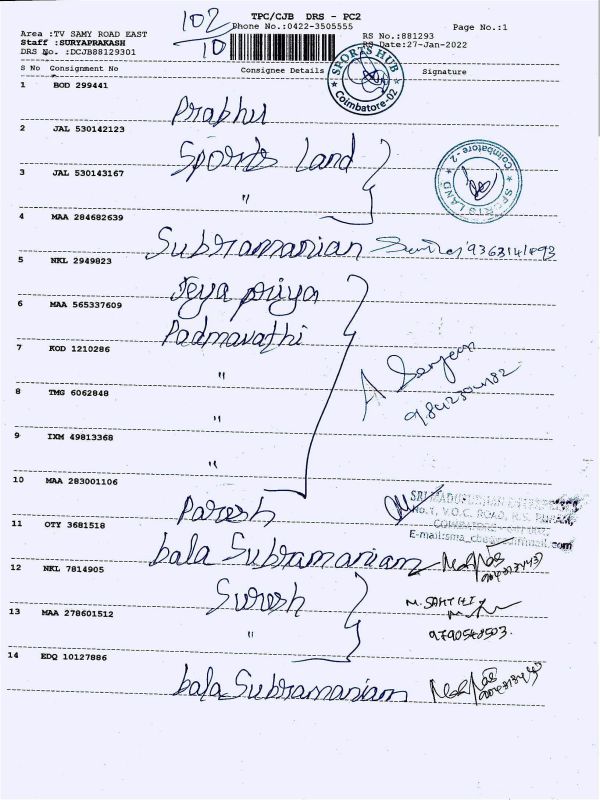 102
10
TPC/CJB DRS - PC2
Phone No.:0422-3505555
Page No.:1
Area :TV SAMY ROAD EAST
Staff :SURYAPRAKASH
DRS No. :DCJB88129301
RS No.:881293
RS Date:27-Jan-2022
S No Consignment No Consignee Details Signature
SPORTS HUB
Coimbatore-02
1 BOD 299441
Prabhu
2 JAL 530142123
Sports Land
SPORTS LAND
Coimbatore - 2
3 JAL 530143167
"
4 MAA 284682639
Subramanian
5 NKL 2949823
Jeya priya
6 MAA 565337609
Padmavathi
7 KOD 1210286
"
8 TMG 6062848
"
9 IXM 49813368
"
10 MAA 283001106
Paresh
No.1, V.O.C. ROAD, R.S. PURAM,
11 OTY 3681518
bala Subramaniam
12 NKL 7814905
Suresh
M. SAKTHI
13 MAA 278601512
"
9790548503.
14 EDQ 10127886
bala Subramaniam